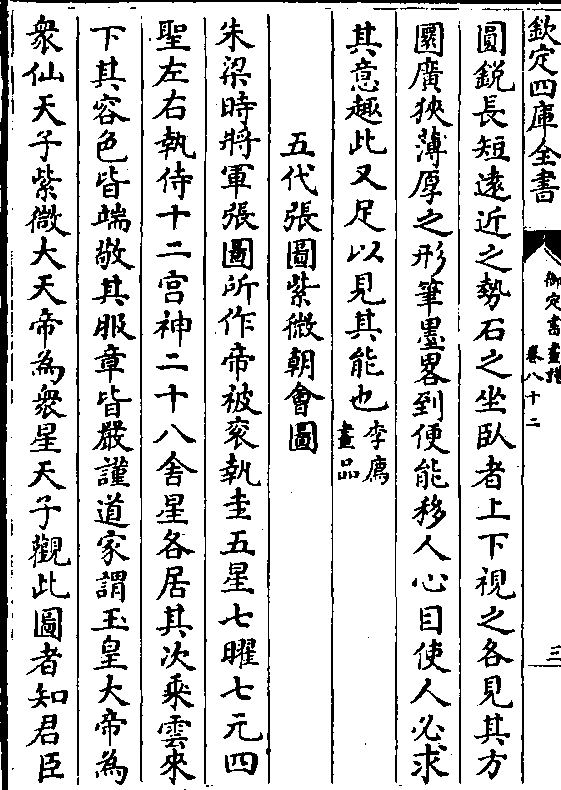 欽定四庫全書
御定書畫譜
卷八十二
三
圓鋭長短逺近之勢石之坐臥者上下視之各見其方
圜廣狹薄厚之形筆墨畧到便能移人心目使人必求
其意趣此又足以見其能也李廌畫品
五代張圖紫微朝會圖
朱梁時將軍張圖所作帝被衮執圭五星七曜七元四
聖左右執侍十二宫神二十八舍星各居其次乘雲來
下其容色皆端敬其服章皆嚴謹道家謂玉皇大帝為
衆仙天子紫微大天帝為衆星天子觀此圖者知君臣